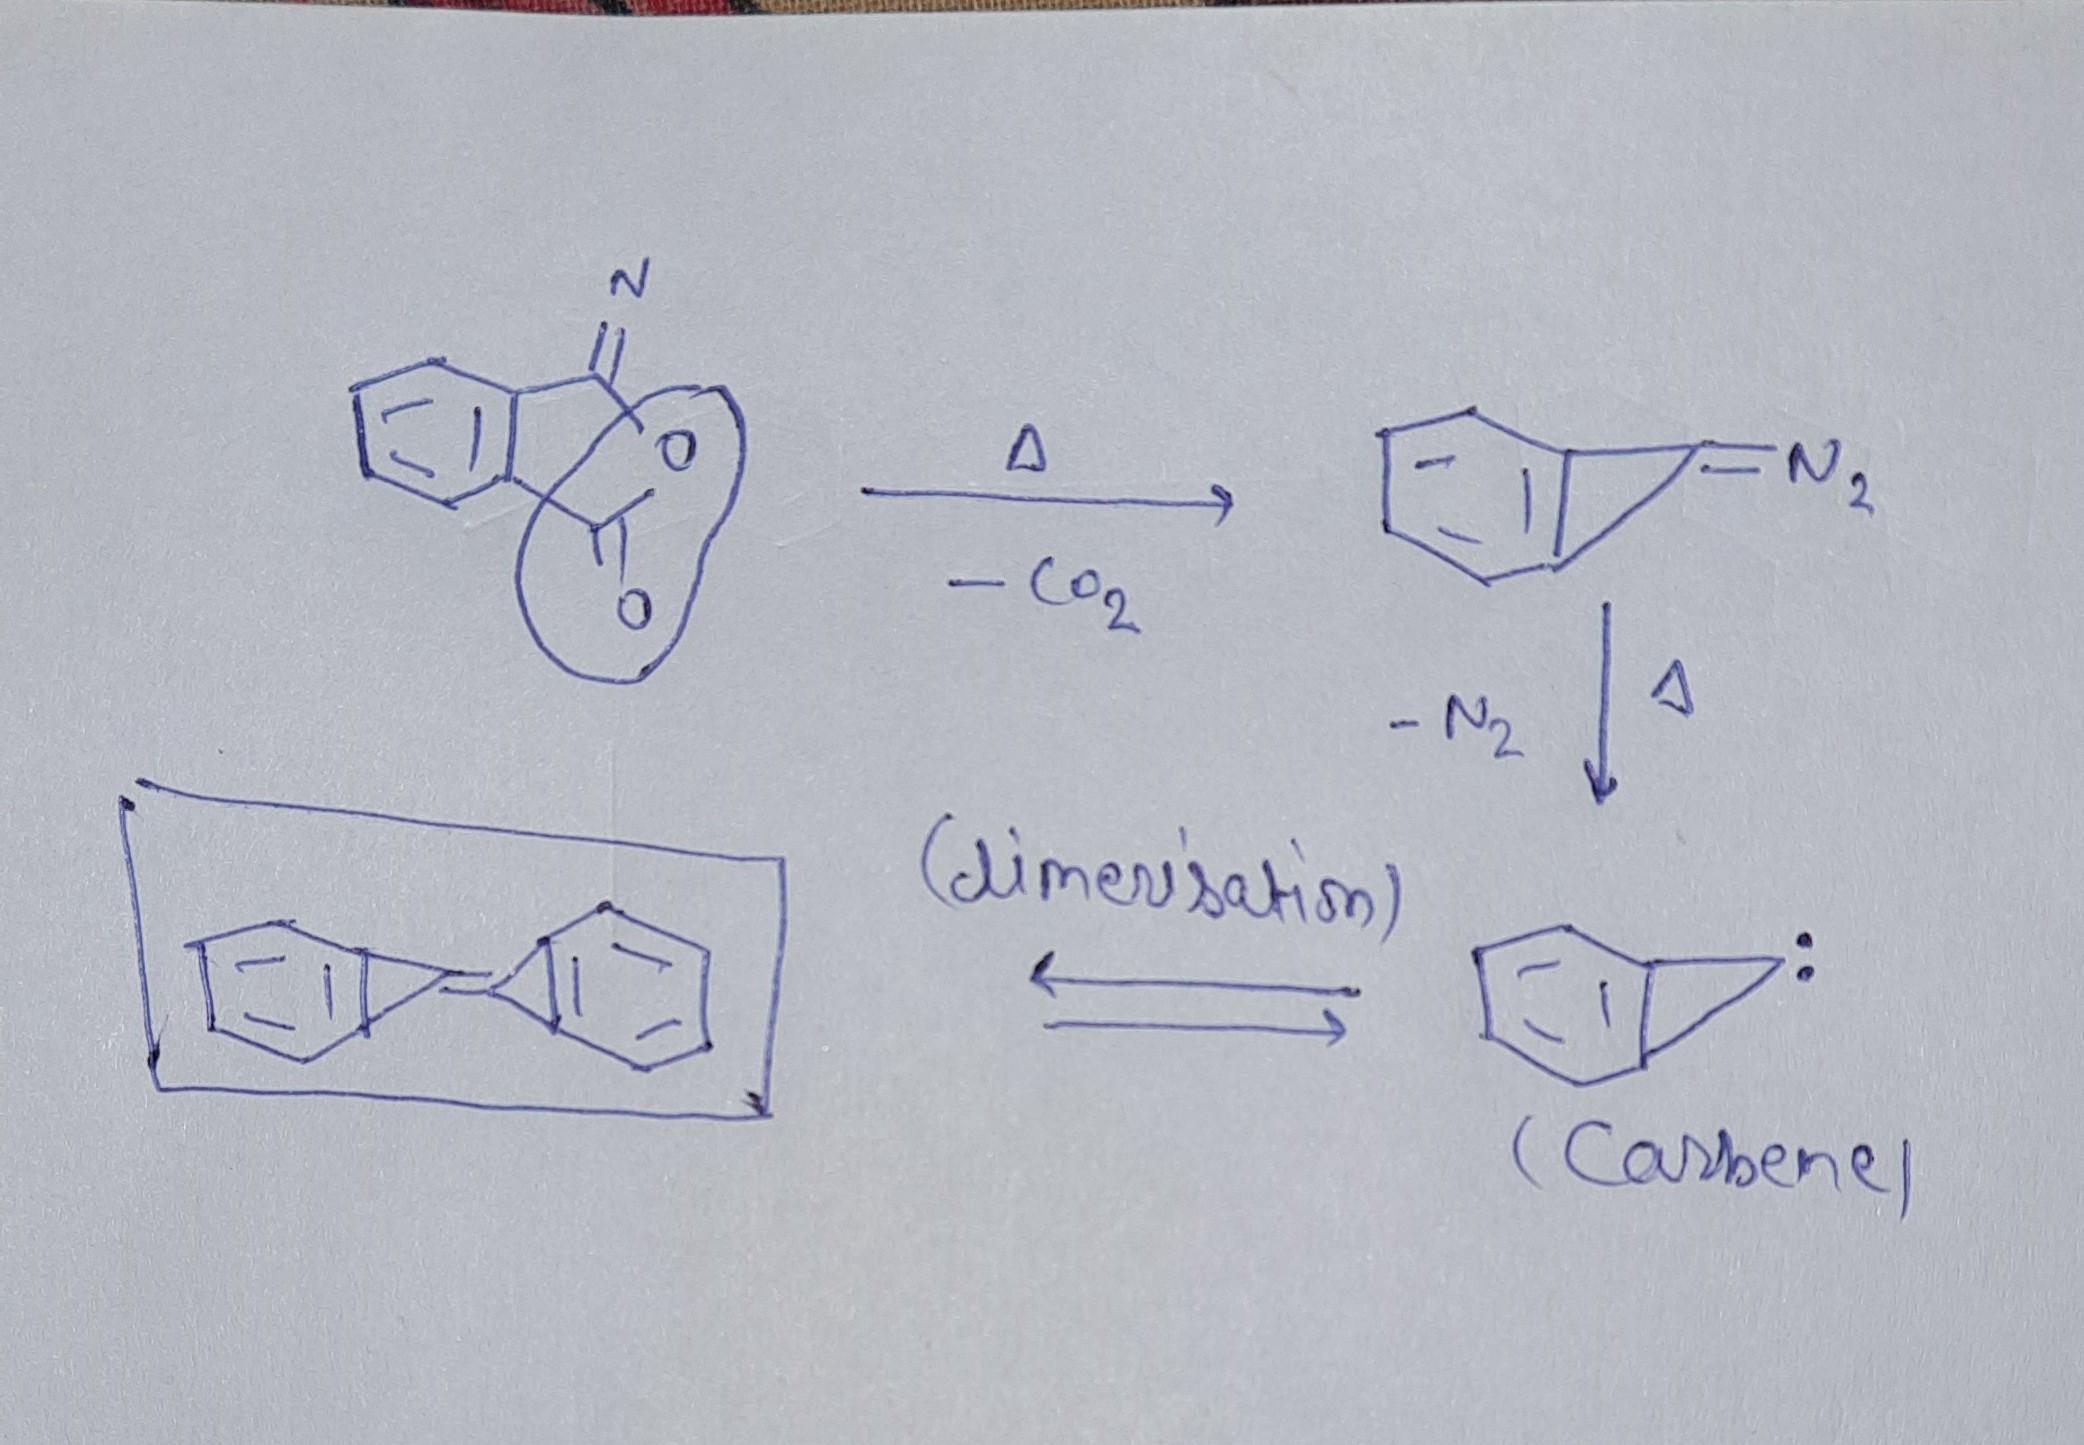 N
O
O
Δ
- CO2
= N2
- N2
Δ
(dimerisation)
:
(Carbene)